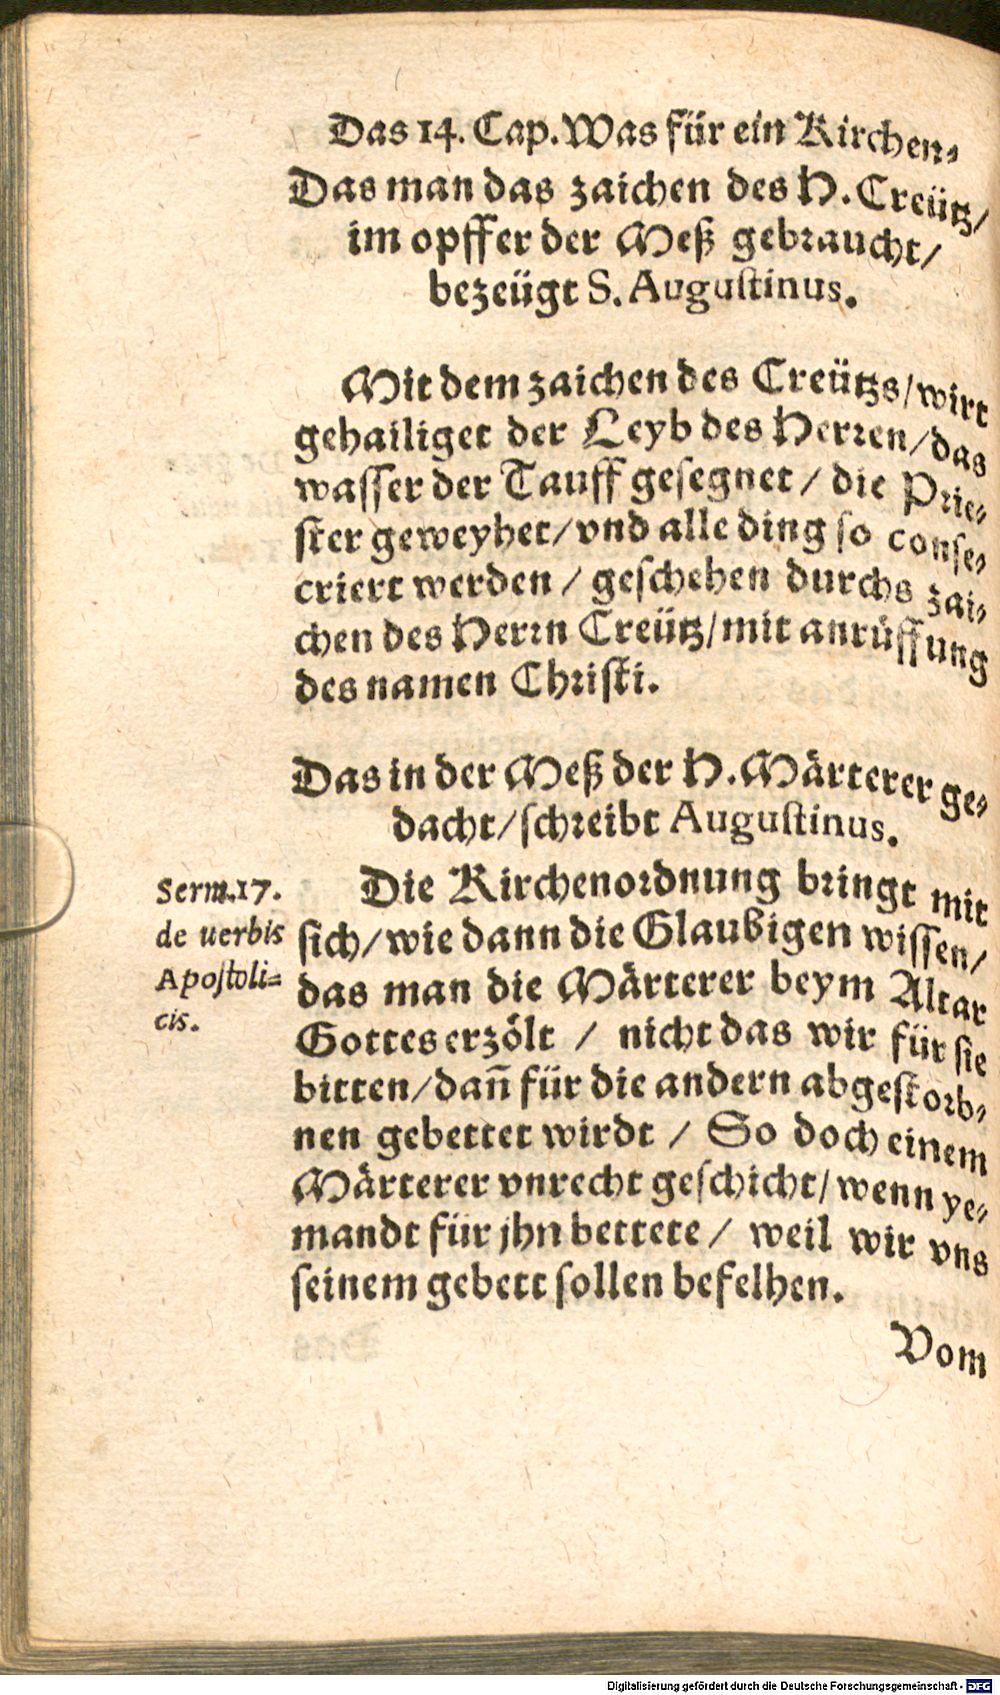 Das 14. Cap. Was für ein Kirchen-
Das man das zaichen des H. Creütz/
im opffer der Meß gebraucht/
bezeügt S. Augustinus.
Mit dem zaichen des Creützs/wirt
gehailiget der Leyb des Herren/das
wasser der Tauff gesegnet/ die Prie-
ster geweyhet/vnd alle ding so conse-
criert werden/ geschehen durchs zai-
chen des Herrn Creütz/mit anrüffung
des namen Christi.
Das in der Meß der H. Märterer ge-
dacht/schreibt Augustinus.
Die Kirchenordnung bringt mit
sich/wie dann die Glaubigen wissen/
das man die Märterer beym Altar
Gottes erzölt / nicht das wir für sie
bitten/dañ für die andern abgestorb-
nen gebettet wirdt / So doch einem
Märterer vnrecht geschicht/wenn ye-
mandt für jhn bettete/ weil wir vns
seinem gebett sollen befelhen.
Serm.17.
de uerbis
Apostoli=
cis.
Vom
Digitalisierung gefördert durch die Deutsche Forschungsgemeinschaft - DFG